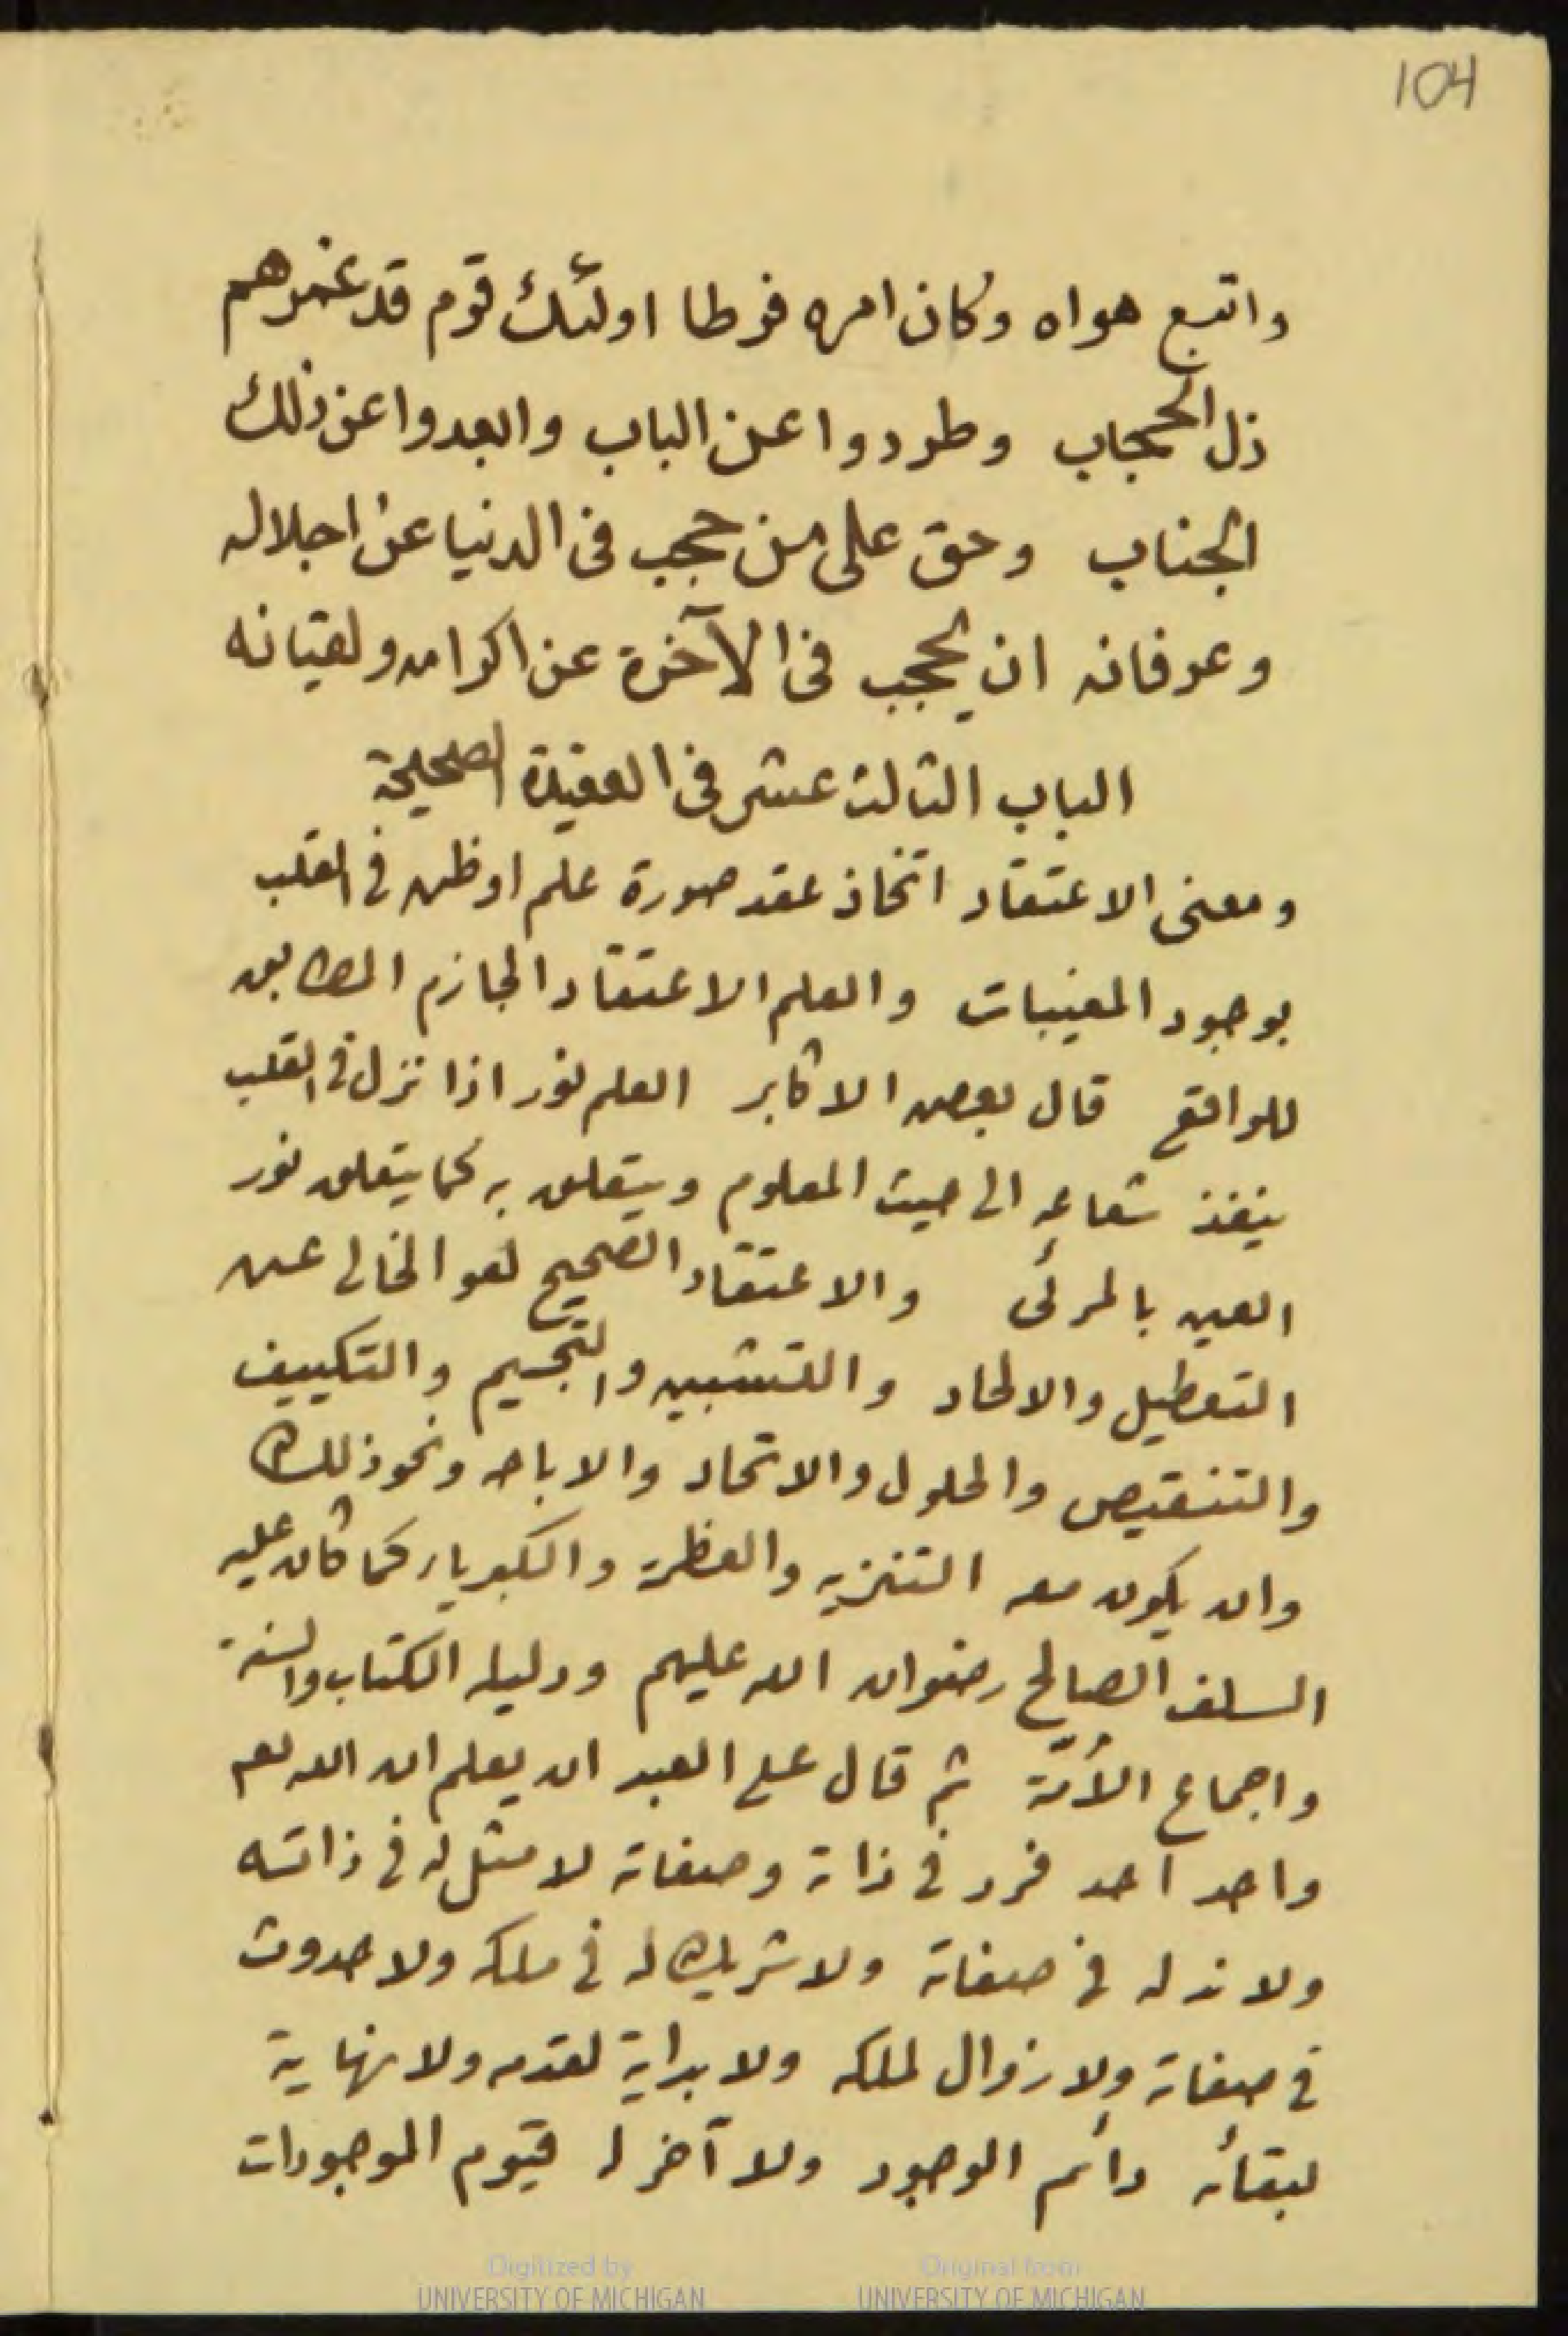 104
واتبع هواه وكان امره فرطا اولئك قوم قد غمرهم
ذل الحجاب وطردوا عن الباب وابعدوا عن ذلك
الجناب وحق على من حجب فى الدنيا عن اجلاله
وعرفانه ان يحجب فى الآخرة عن اكرامه ولقيانه
الباب الثالث عشر فى العقيدة الصحيحة
ومعنى الاعتقاد اتخاذ عقد صورة علم او ظن فى القلب
بوجود المغيبات والعلم الاعتقاد الجازم المطابق
للواقع قال بعض الاكابر العلم نور اذا نزل فى القلب
ينفذ شعاعه الى حيث المعلوم ويتعلق به كما يتعلق نور
العين بالمرئى والاعتقاد الصحيح هو الخالى عن
التعطيل والالحاد والتشبيه والتجسيم والتكييف
والتنقيص والحلول والاتحاد والاباحه ونحو ذلك
وان يكون معه التنزيه والعظمة والكبرياء كما كان عليه
السلف الصالح رضوان الله عليهم ودليله الكتاب والسنة
واجماع الأمّة ثم قال على العبد ان يعلم ان الله تعم
واحد احد فرد فى ذاته وصفاته لا مثل له فى ذاته
ولا ند له فى صفاته ولا شريك له فى ملكه ولا حدوث
فى صفاته ولا زوال لملكه ولا بداية لقدمه ولا نهاية
لبقائه دائم الوجود ولا آخر له قيوم الموجودات
Digitized by
UNIVERSITY OF MICHIGAN
Original from
UNIVERSITY OF MICHIGAN